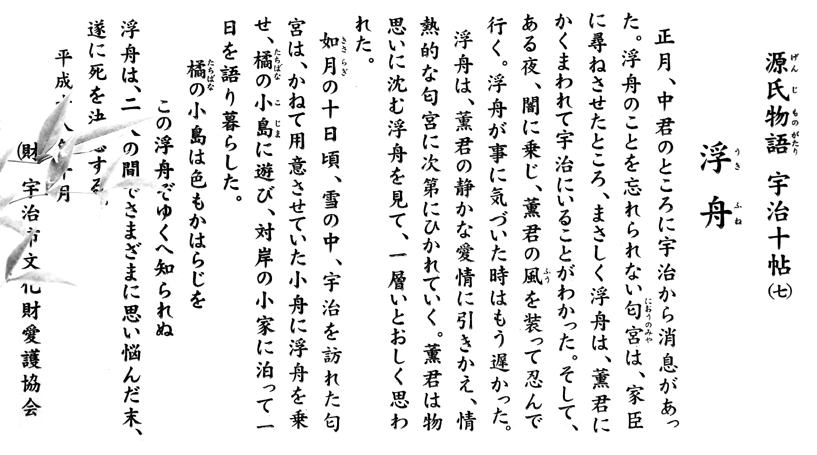 源氏物語 宇治十帖(七)
浮舟
正月、中君のところに宇治から消息があっ
た。浮舟のことを忘れられない匂宮は、家臣
に尋ねさせたところ、まさしく浮舟は、薫君に
かくまわれて宇治にいることがわかった。そして、
ある夜、闇に乗じ、薫君の風を装って忍んで
行く。浮舟が事に気づいた時はもう遅かった。
浮舟は、薫君の静かな愛情に引きかえ、情
熱的な匂宮に次第にひかれていく。薫君は物
思いに沈む浮舟を見て、一層いとおしく思わ
れた。
如月の十日頃、雪の中、宇治を訪れた匂
宮は、かねて用意させていた小舟に浮舟を乗
せ、橘の小島に遊び、対岸の小家に泊って一
日を語り暮らした。
橘の小島は色もかはらじを
この浮舟ぞゆくへ知られぬ
浮舟は、二人の間でさまざまに思い悩んだ末、
遂に死を決する。
平成 月
(財 宇治市文化財愛護協会